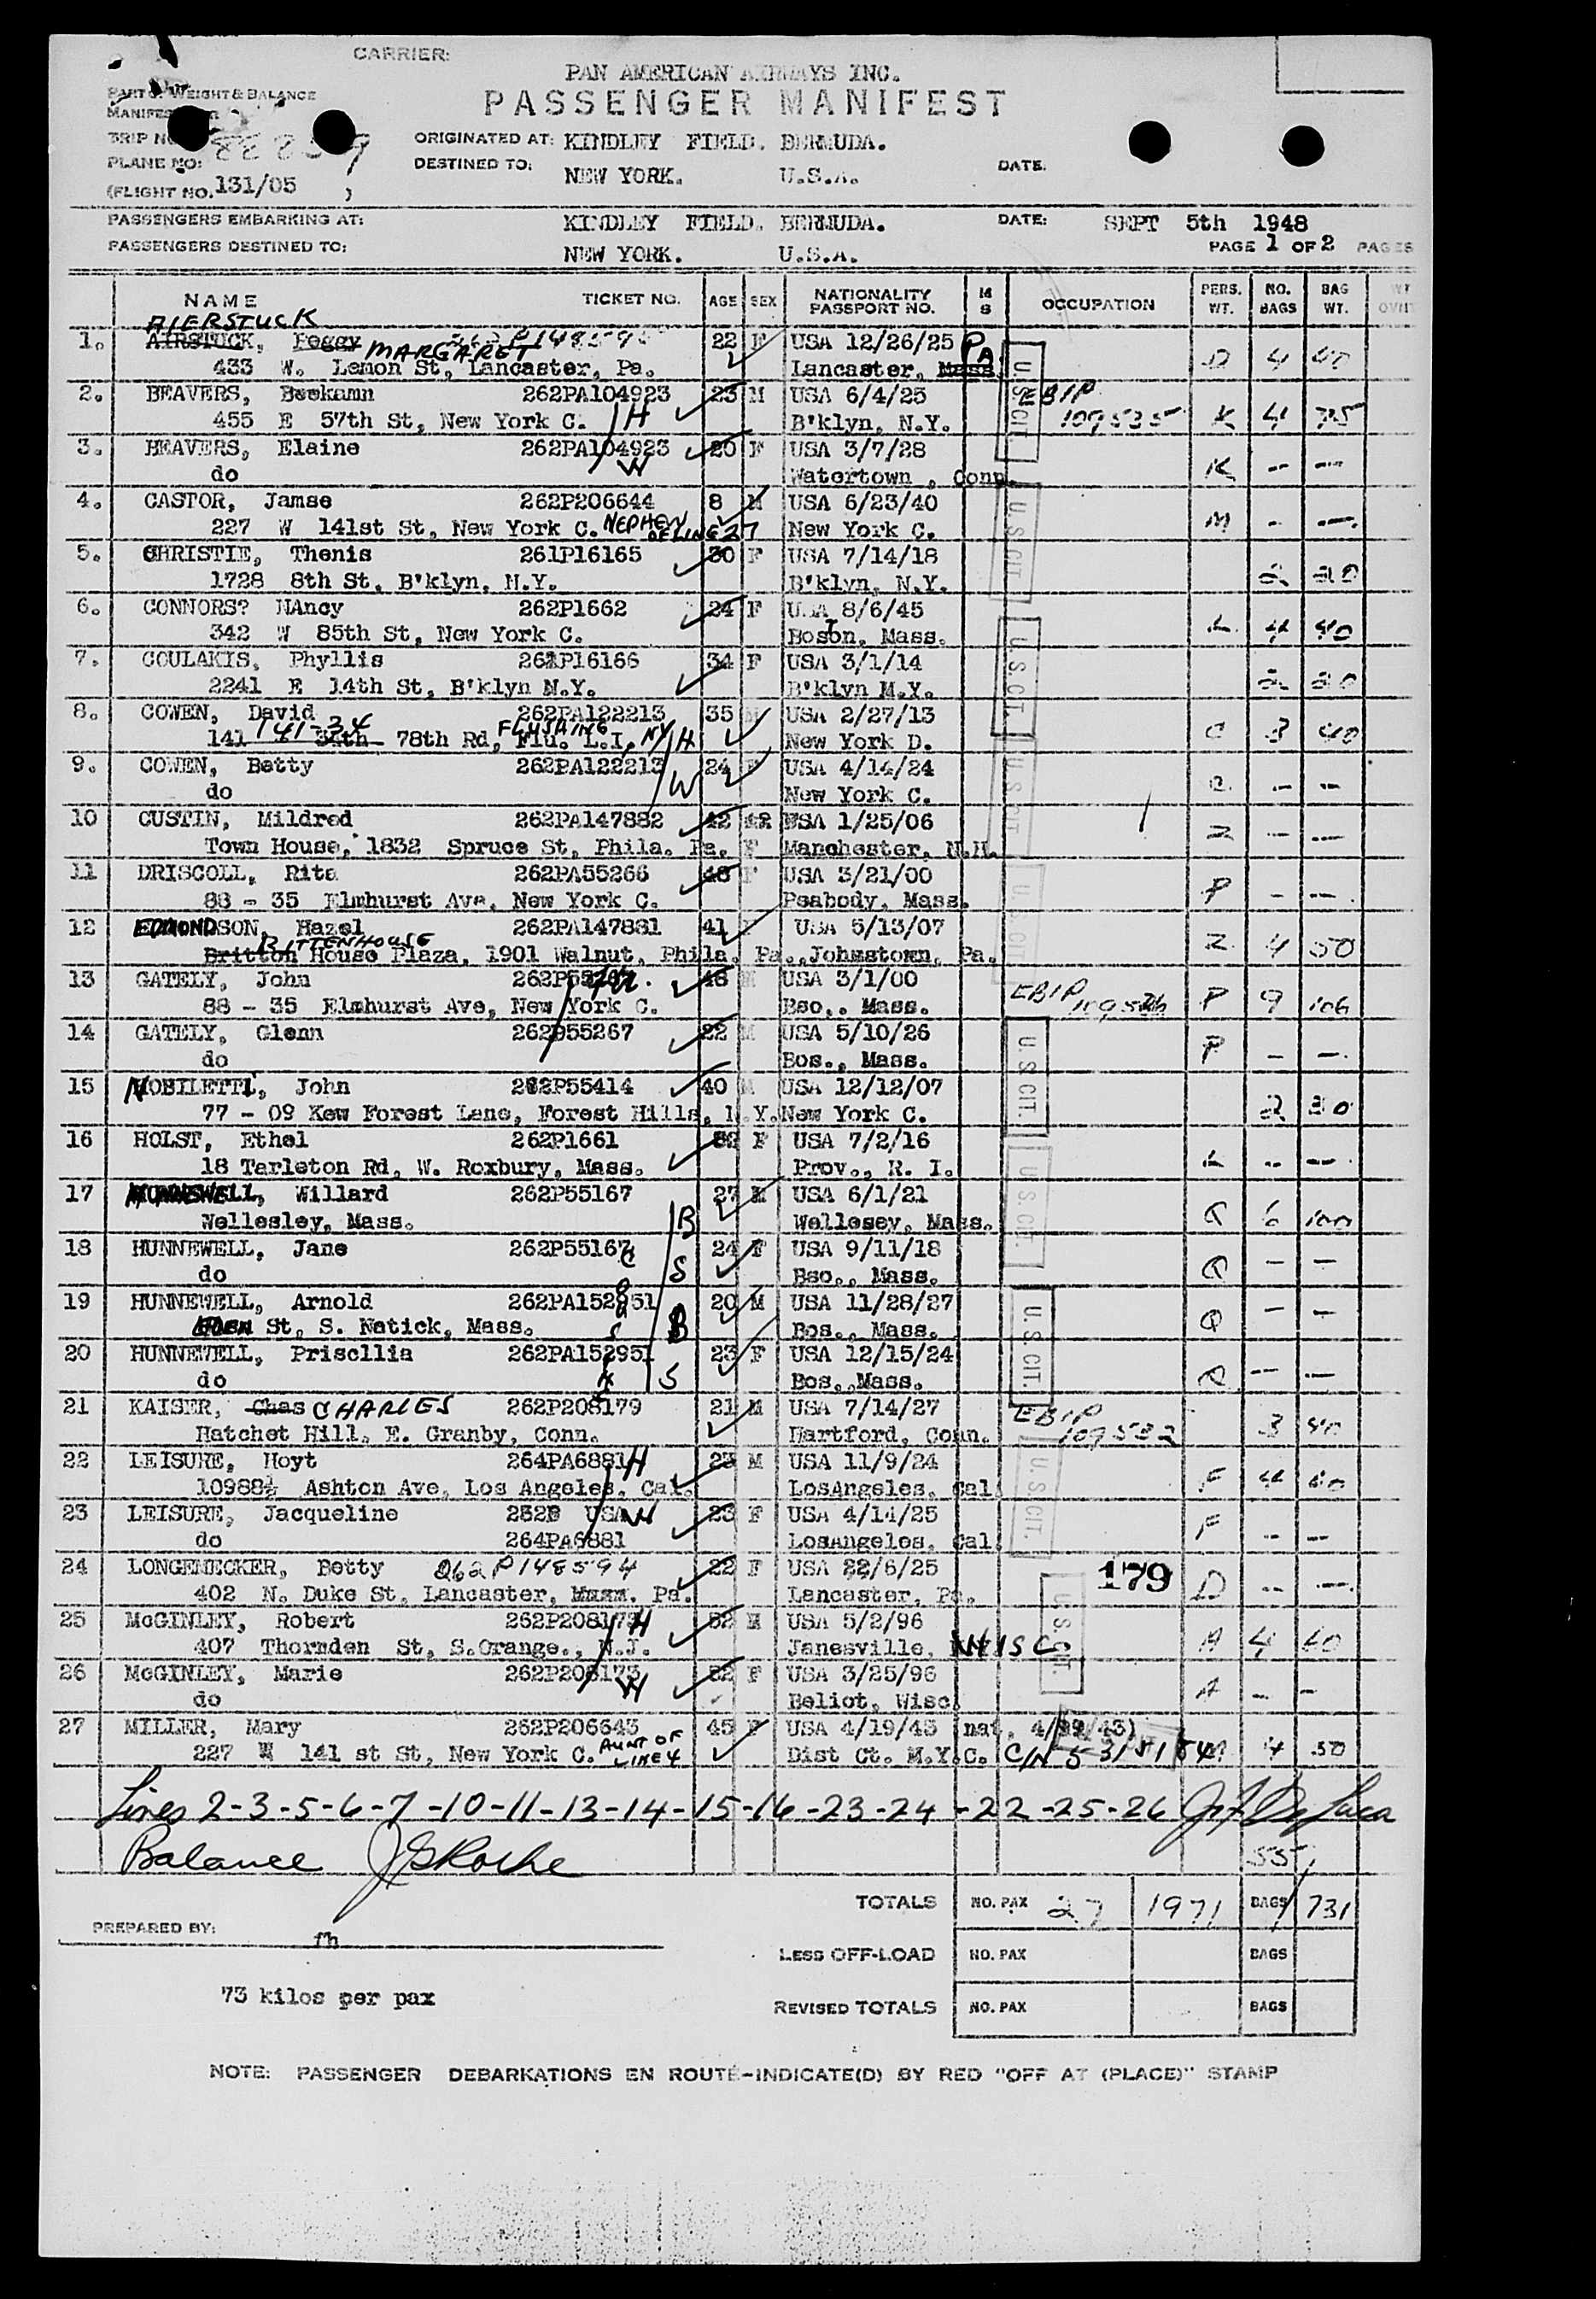 CARRIER:
PAN AMERICAN AIRWAYS INC.
PART OF WEIGHT & BALANCE
PASSENGER MANIFEST
MANIFEST
TRIP NO
ORIGINATED AT: KINDLEY FIELD. BERMUDA.
PLANE NO:
DESTINED TO: NEW YORK. U.S.A. DATE.
(FLIGHT NO. 131/05 )
PASSENGERS EMBARKING AT: KINDLEY FIELD. BERMUDA. DATE: SEPT 5th 1948
PASSENGERS DESTINED TO: NEW YORK. U.S.A. PAGE 1 OF 2 PAGES
NAME TICKET NO. AGE SEX NATIONALITY PASSPORT NO. M S OCCUPATION PERS. WT. NO. BAGS BAG WT.
AIERSTUCK
1. AIRSTUCK, Peggy MARGARET 22 F USA 12/26/25 PA.
433 W. Lemon St, Lancaster, Pa. Lancaster, Mass. D 4 40
2. BEAVERS, Beekamn 262PA104923 23 M USA 6/4/25 EBIP
455 E 57th St, New York C. H B'klyn, N.Y. 109535 K 4 75
3. BEAVERS, Elaine 262PA104923 20 F USA 3/7/28
do W Watertown , Conn. K -- --
4. CASTOR, Jamse 262P206644 8 M USA 6/23/40
227 W 141st St, New York C. NEPHEW OF LINE 27 New York C. M - --.
5. CHRISTIE, Thenis 261P16165 30 F USA 7/14/18
1728 8th St, B'klyn, N.Y. B'klyn, N.Y. 2 20
6. CONNORS? NAncy 262P1662 24 F U.A 8/6/45
342 W 85th St, New York C. Boson, Mass. T L. 4 40
7. COULAKIS, Phyllis 261P16166 34 F USA 3/1/14
2241 E 14th St, B'klyn N.Y. B'klyn N.Y. 2 20
8. COWEN, David 262PA122213 35 M USA 2/27/13
141 141-34 34th 78th Rd, Flu. FLUSHING L.I, NY H New York D. C 3 40
9. COWEN, Betty 262PA122213 24 F USA 4/14/24
do W New York C. C. -- --
10 CUSTIN, Mildred 262PA147882 42 42 USA 1/25/06
Town House, 1832 Spruce St, Phila. Pa. F Manchester, N.H. Z -- --
11 DRISCOLL, Rita 262PA55266 48 F USA 3/21/00
88 - 35 Elmhurst Ave, New York C. Peabody, Mass. P - --
12 EDMONDSON, Hazel 262PA147881 41 F USA 5/13/07
Britton RITTENHOUSE House Plaza, 1901 Walnut, Phila. Pa., Johnstown, Pa. Z. 4 50
13 GATELY, John 48 M USA 3/1/00 EBIP
88 - 35 Elmhurst Ave, New York C. Bso,. Mass. P 9 106
14 GATELY, Glenn 262P55267 22 M USA 5/10/26
do Bos., Mass. P - --.
15 NOBILETTI, John 262P55414 40 M USA 12/12/07
77 - 09 Kew Forest Lane, Forest Hills, N.Y. New York C. 2 30
16 HOLST, Ethel 262P1661 F USA 7/2/16
18 Tarleton Rd, W. Roxbury, Mass. Prov., R. I. L -- --.
17 HUNNEWELL, Willard 262P55167 27 M USA 6/1/21
Wellesley, Mass. B Wellesey, Mass. Q 6 100
18 HUNNEWELL, Jane 262P55167 24 F USA 9/11/18
do S Bso., Mass. Q -- -
19 HUNNEWELL, Arnold 262PA152951 20 M USA 11/28/27
St, S. Natick, Mass. B Bos., Mass. Q - -
20 HUNNEWELL, Priscllia 262PA152951 23 F USA 12/15/24
do S Bos., Mass. Q -- --
21 KAISER, Chas CHARLES 262P208179 21 M USA 7/14/27 EBIP
Hatchet Hill, E. Granby, Conn. Hartford, Conn. 109532 3 40
22 LEISURE, Hoyt 264PA6881 H 23 M USA 11/9/24
10988½ Ashton Ave, Los Angeles, Cal. LosAngeles, Cal. F 4 60
23 LEISURE, Jacqueline 262P USA W 23 F USA 4/14/25
do 264PA6881 LosAngeles, Cal. F -- --
24 LONGENECKER, Betty 262P148594 22 F USA 22/6/25 179
402 N. Duke St, Lancaster, Mass. Pa. Lancaster, Pa. D -- --.
25 McGINLEY, Robert 262P208173 H 52 M USA 5/2/96
407 Thornden St, S.Orange., N.J. Janesville, WISC. A 4 60
26 McGINLEY, Marie 262P208173 W 52 F USA 3/25/96
do Beliot, Wisc. A -- -
27 MILLER, Mary 262P206643 45 F USA 4/19/43 (nat, 4/19/43)
227 W 141 st St, New York C. AUNT OF LINE 4 Dist Ct. N.Y.C. C/N 5 M 4 50
U.S. CIT.
U.S. CIT.
U.S. CIT.
U.S. CIT.
U.S. CIT.
U.S. CIT.
U.S. CIT.
U.S. CIT.
U.S. CIT.
U.S. CIT.
Lines 2-3-5-6-7-10-11-13-14-15-16-23-24-22-25-26 J.F. DeLuca
Balance JGRoche 55
TOTALS NO. PAX 27 1971 BAGS 731
PREPARED BY: fh
LESS OFF-LOAD NO. PAX BAGS
73 kilos per pax
REVISED TOTALS NO. PAX BAGS
NOTE: PASSENGER DEBARKATIONS EN ROUTE-INDICATE(D) BY RED "OFF AT (PLACE)" STAMP